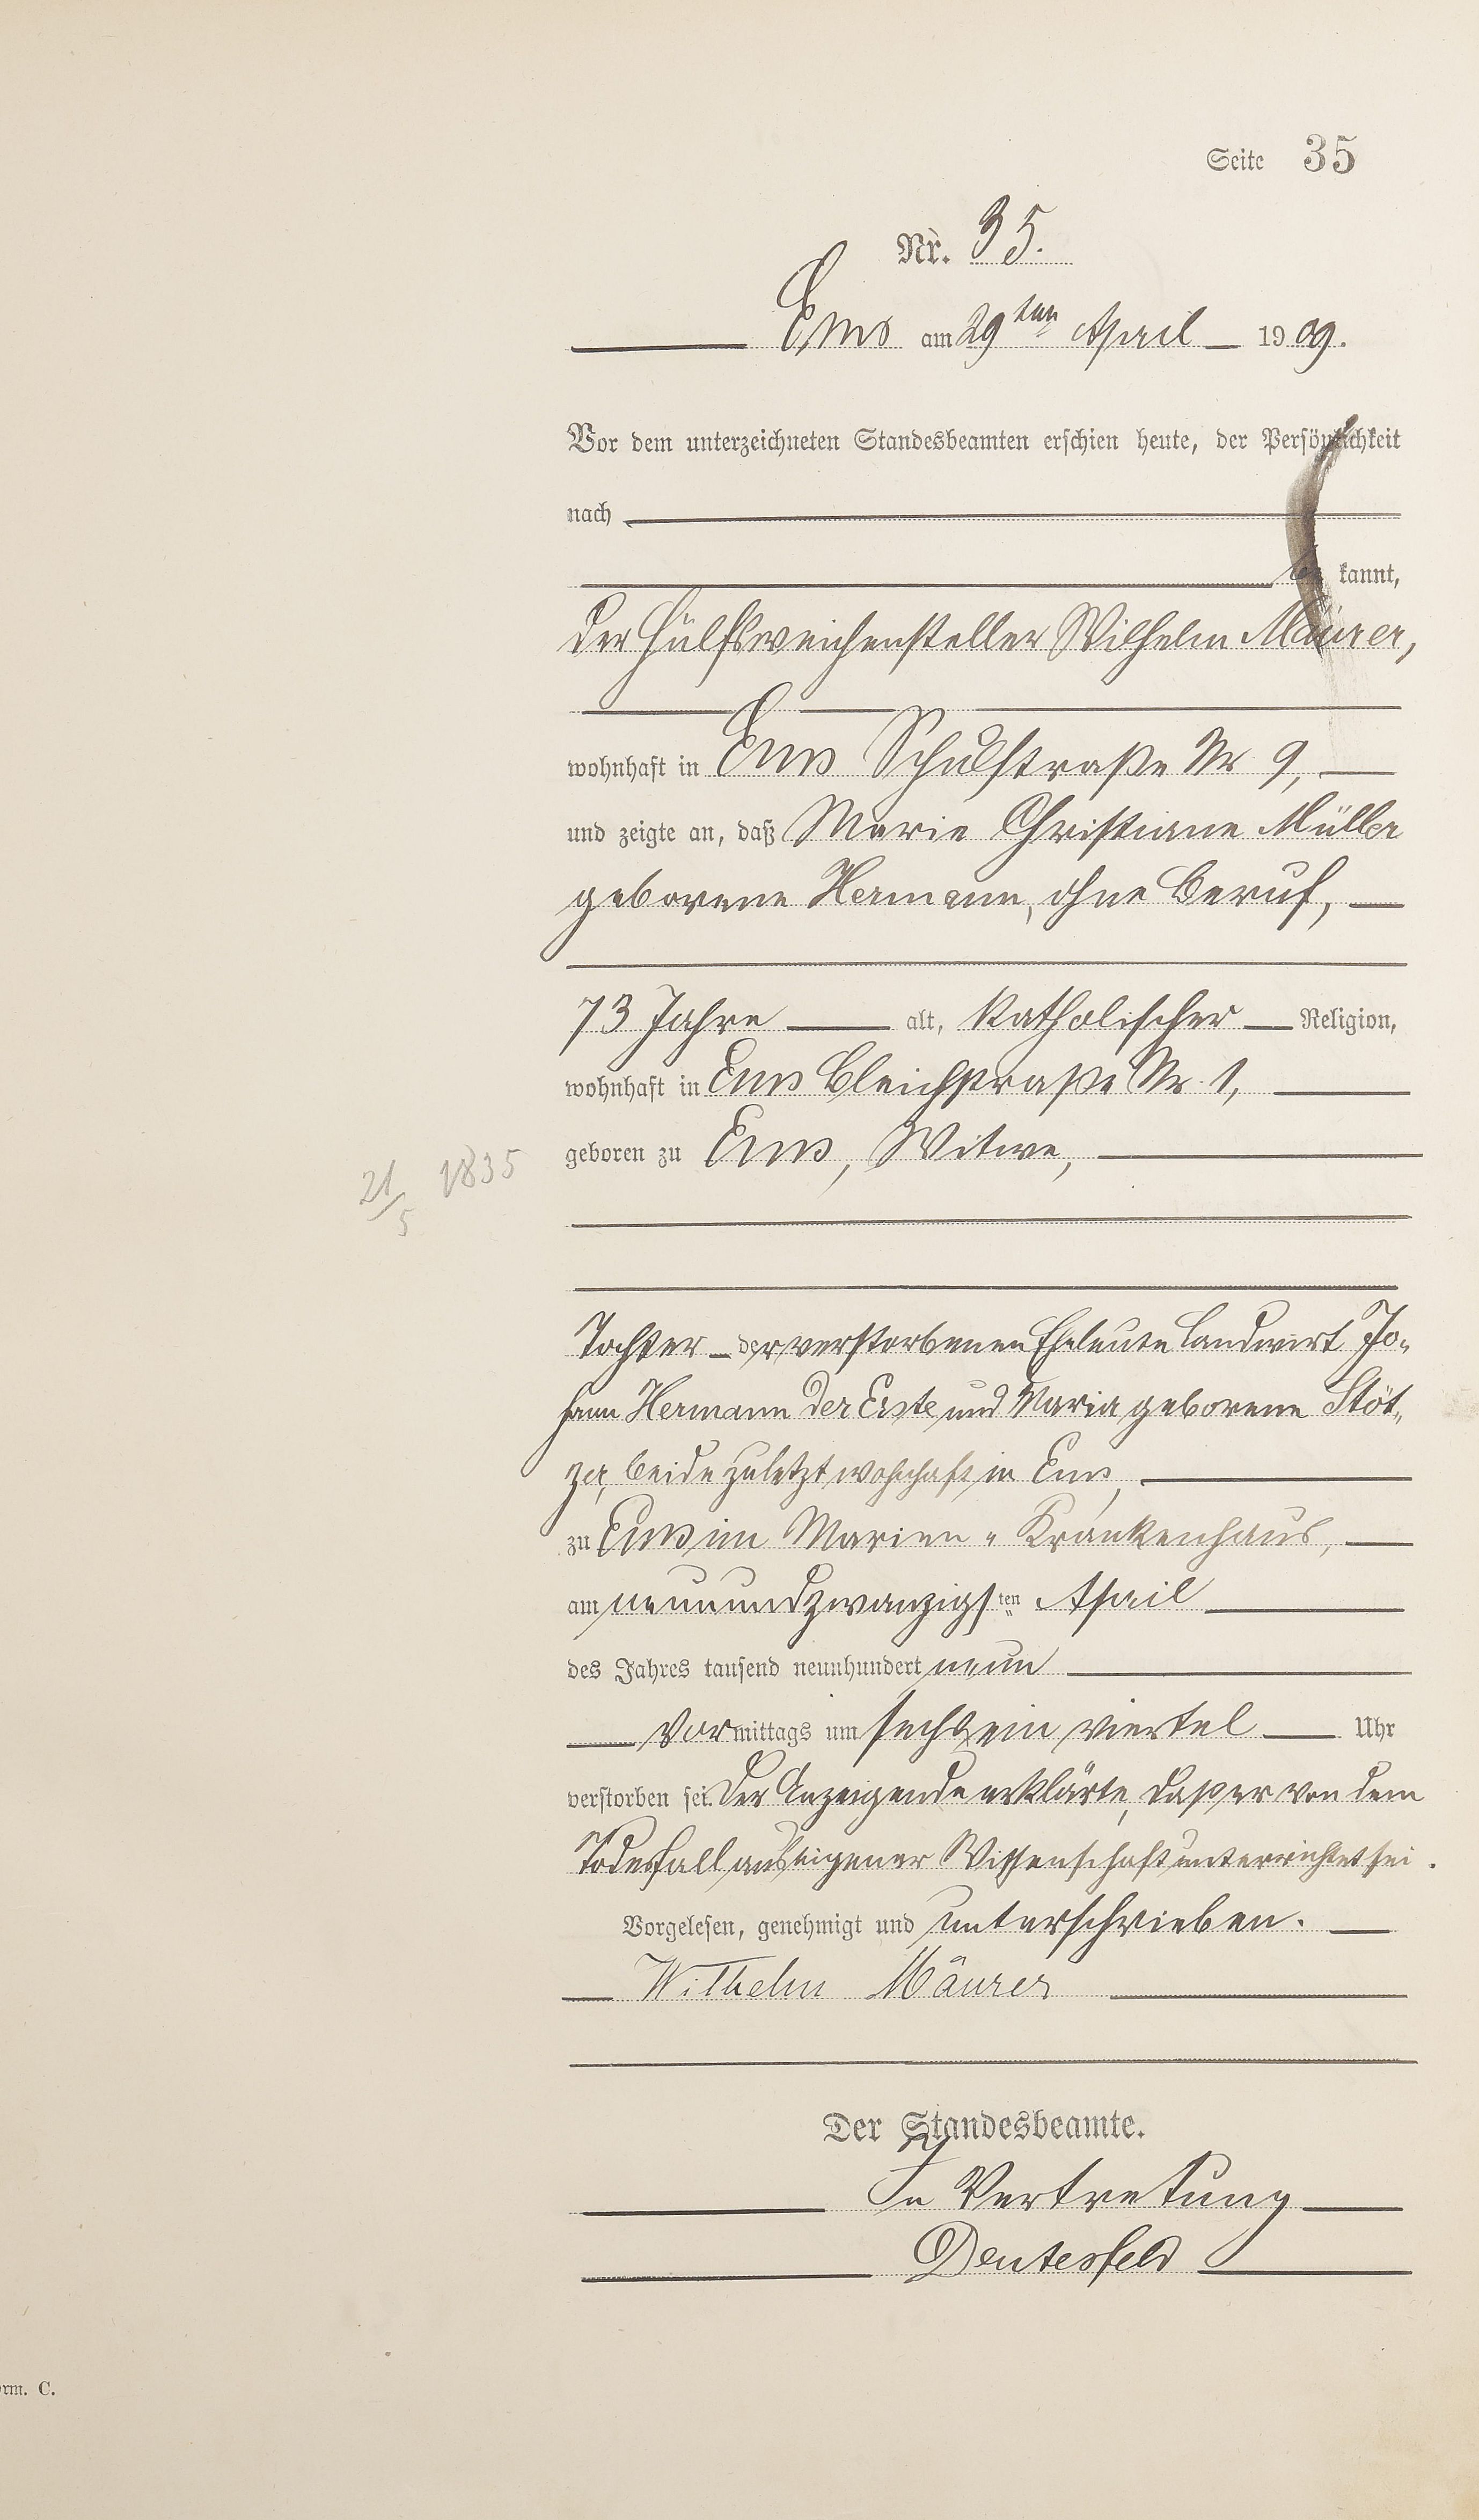 Seite 35
Nr. 35.
Ems am 29ten April 1909.
Vor dem unterzeichneten Standesbeamten erschien heute, der Persönlichkeit
nach
be kannt,
der Hülfsweichensteller Wilhelm Mäurer,
wohnhaft in Ems Schulstraße Nr 9,
und zeigte an, daß Marie Christiane Müller
geborene Hermann, ohne Beruf,
73 Jahre alt, katholischer Religion,
wohnhaft in Ems Bleichstraße Nr. 1,
geboren zu Ems, Witwe,
21/5 1835
Tochter der verstorbenen Eheleute Landwirt Jo-
hann Hermann der Erste und Maria geborene Stöt-
zer, beide zuletzt wohnhaft in Ems,
zu Ems im Marien-Krankenhaus,
am neunundzwanzigsten April
des Jahres tausend neunhundert neun
Vormittags um sechs ein viertel Uhr
verstorben sei. Der Anzeigende erklärte, daß er von dem
Todesfall aus eigener Wissenschaft unterrichtet sei.
Vorgelesen, genehmigt und unterschrieben.
Wilhelm Mäurer
Der Standesbeamte.
In Vertretung
Deutesfeld
orm. C.